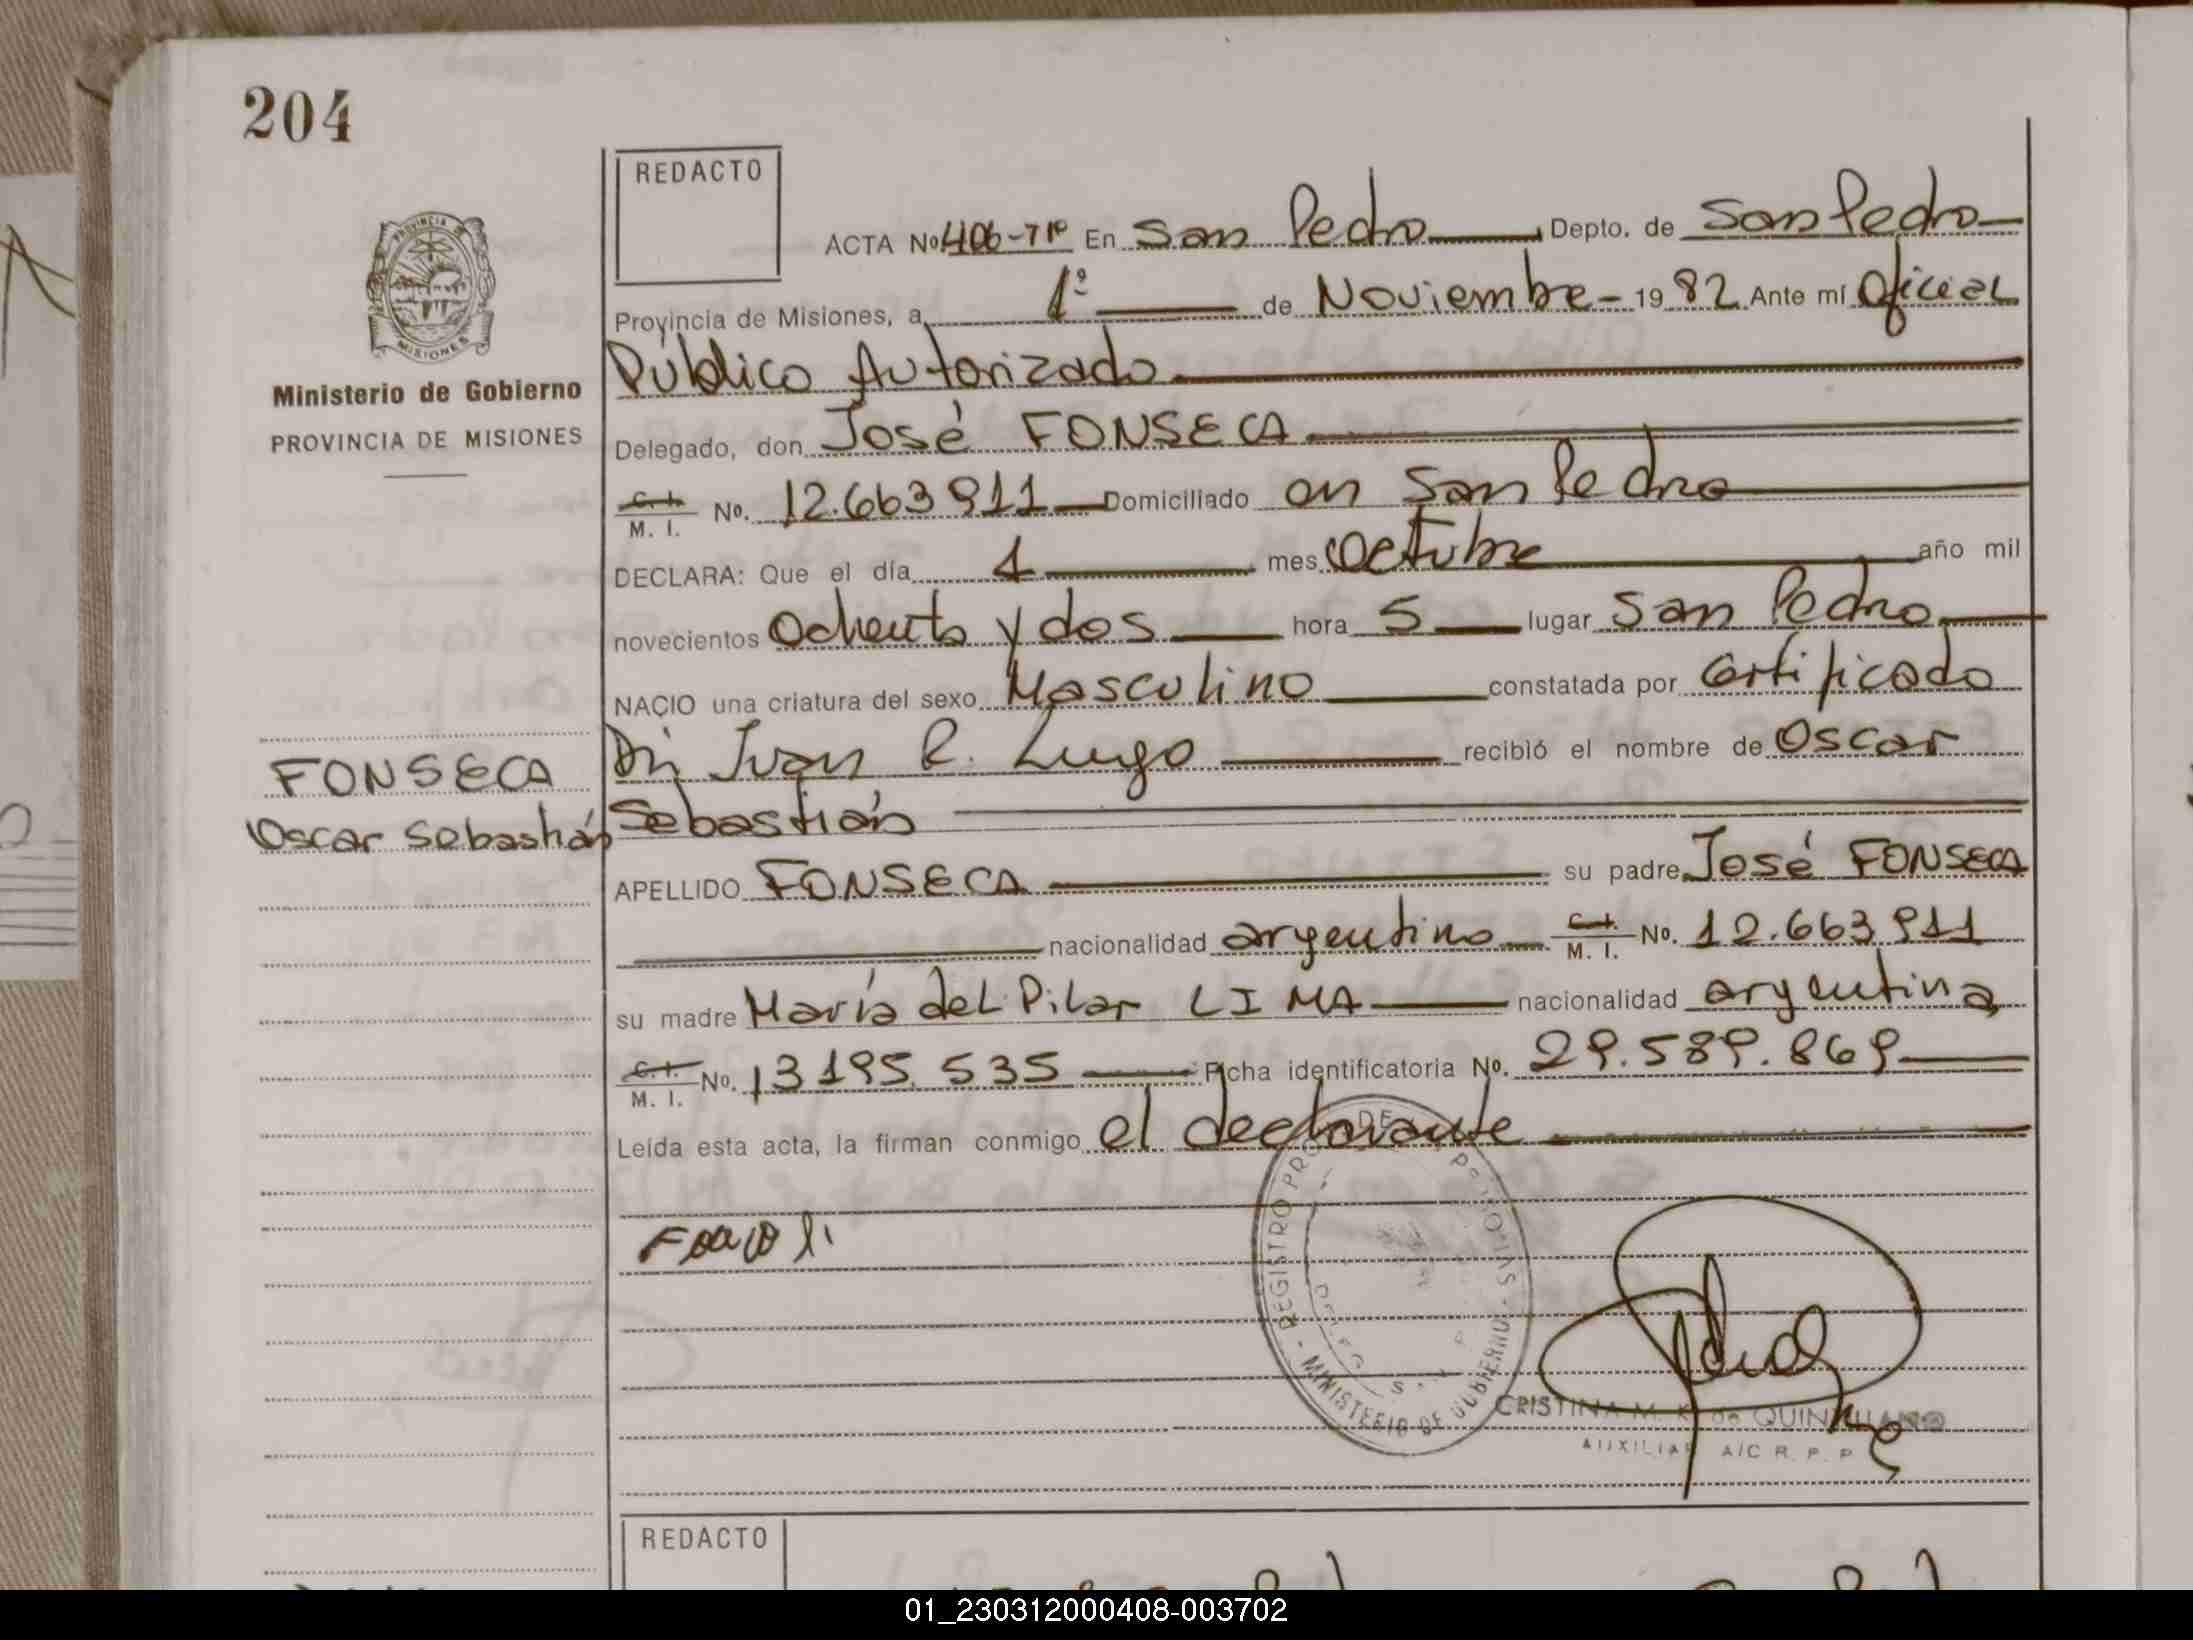 204
REDACTO
ACTA Nº 406-Tº1º En San Pedro Depto. de San Pedro
Provincia de Misiones, a 1º de Noviembre 1982 Ante mí Oficial
Público Autorizado
Delegado, don José FONSECA
C. I. M. I. Nº. 12.663.911 Domiciliado en San Pedro
DECLARA: Que el día 1 mes Octubre año mil
novecientos Ochenta y dos hora 5 lugar San Pedro
NACIO una criatura del sexo Masculino constatada por Certificado
Dr. Juan R. Lugo recibió el nombre de Oscar
Sebastián
APELLIDO FONSECA su padre José FONSECA
nacionalidad argentino C. I. M. I. Nº. 12.663.911
su madre María del Pilar LIMA nacionalidad argentina
C. I. M. I. Nº. 13195.535 Ficha identificatoria Nº. 29.589.869
Leída esta acta, la firman conmigo el declarante
PROVINCIA DE
MISIONES
Ministerio de Gobierno
PROVINCIA DE MISIONES
FONSECA
Oscar Sebastián
REGISTRO DE
MINISTERIO DE GOBIERNO
CRISTINA M. K. de
AUXILIAR A/C R. P. P.
REDACTO
01_230312000408-003702